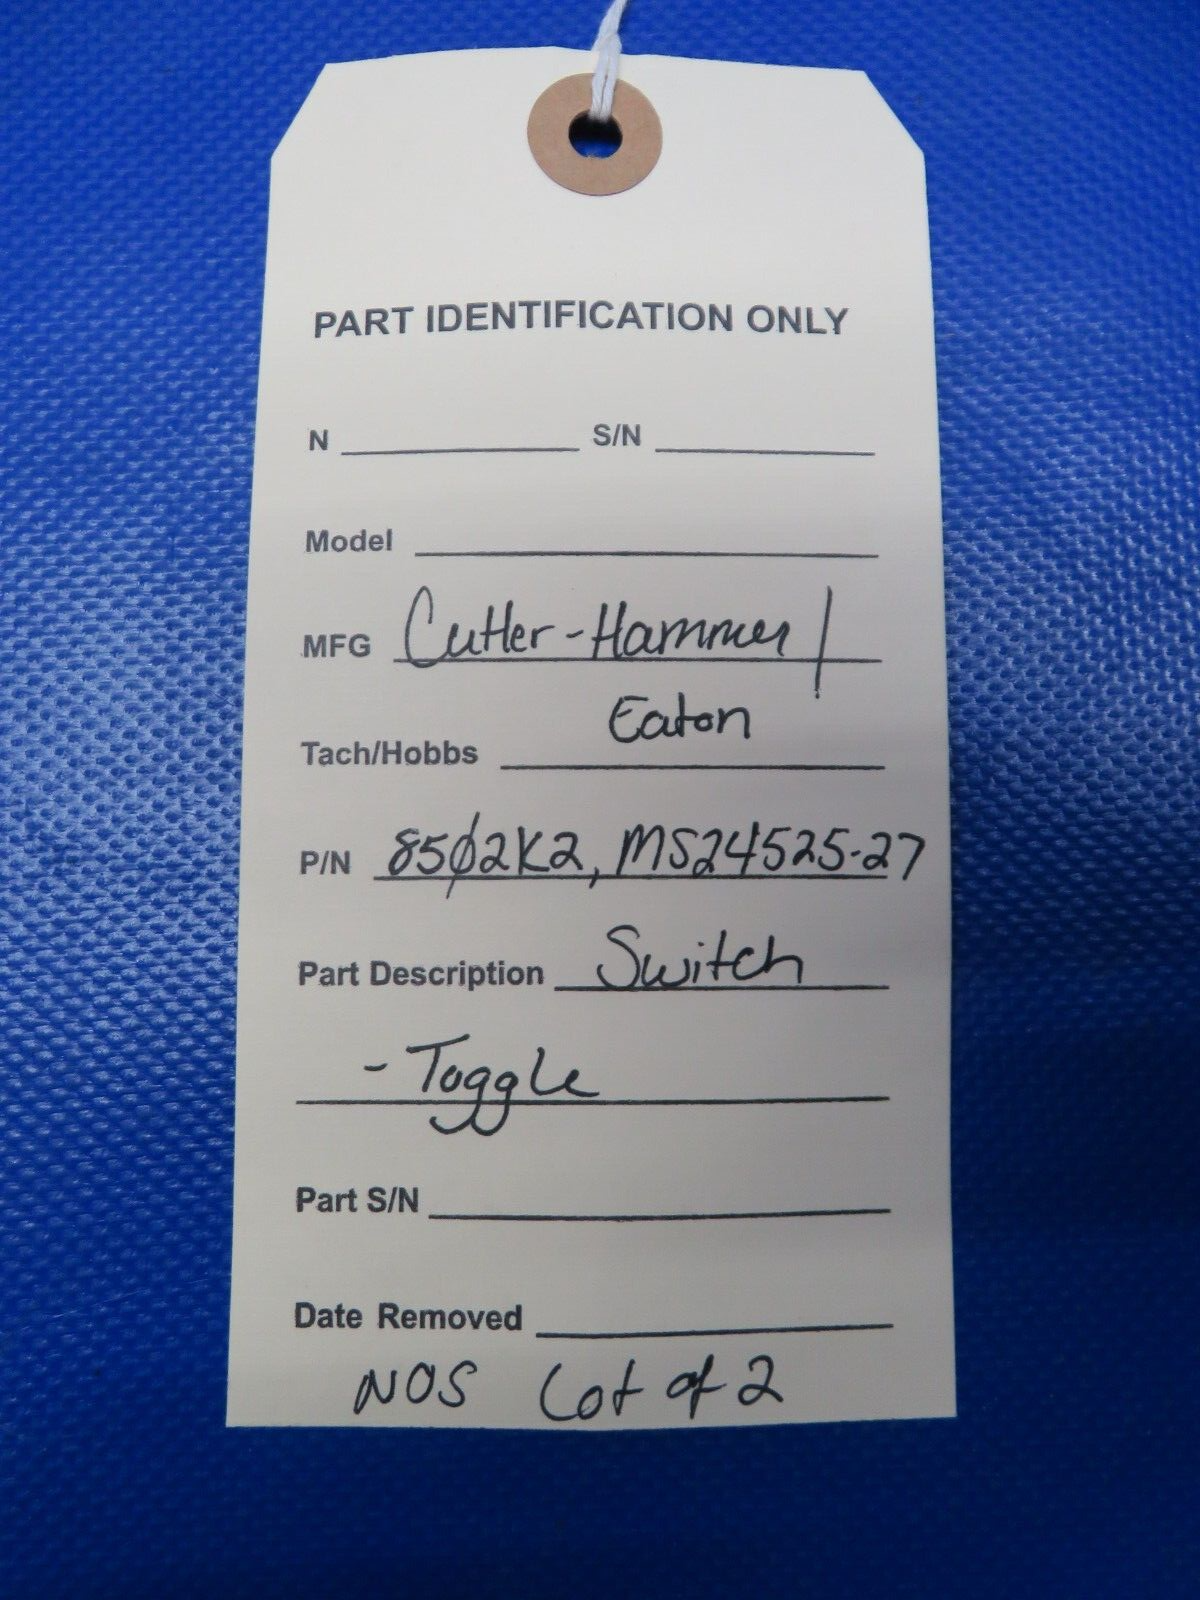 PART IDENTIFICATION ONLY
N S/N
Model
MFG Cutler-Hammer /
Eaton
Tach/Hobbs
P/N 85Ø2K2, MS24525-27
Part Description Switch
- Toggle
Part S/N
Date Removed
NOS Lot of 2